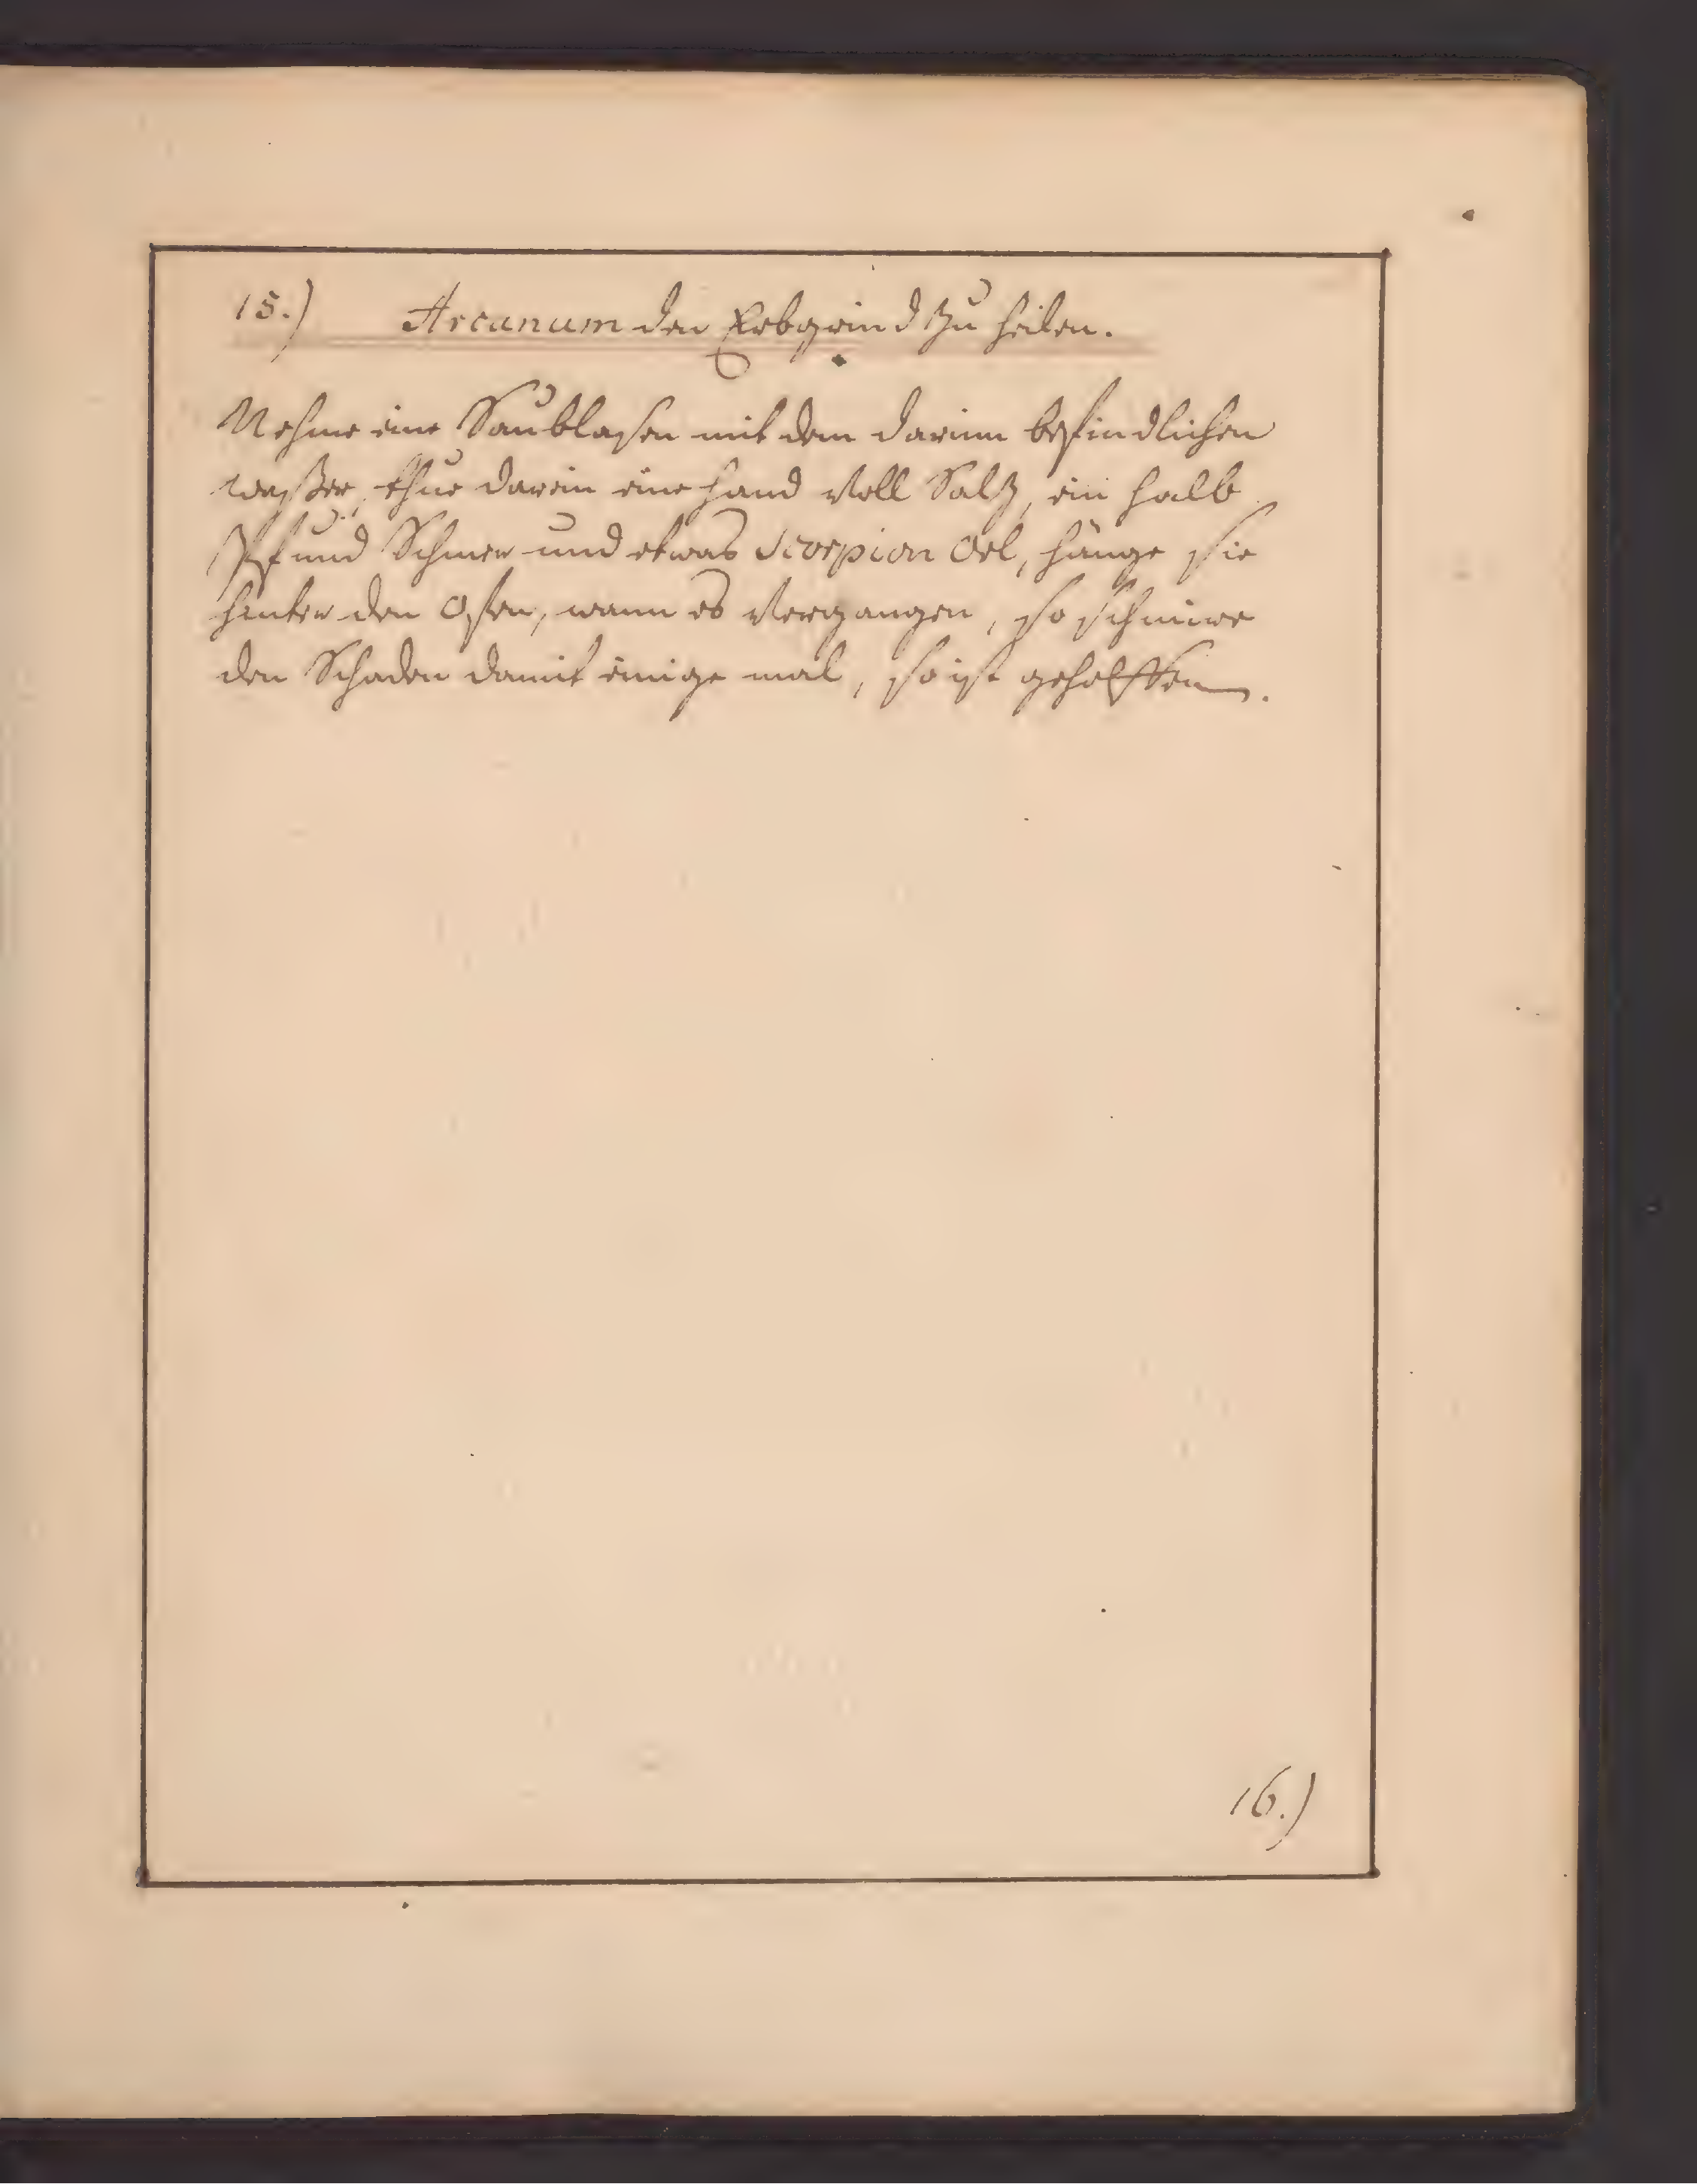 15.) Arcanum den Erbgrind zu heilen.
Nehme eine Saublasen mit dem darinn befindlichen
waßer, thue darein eine hand voll Saltz, ein halb
Pfund Schmer und etwas Scorpion Oel, hänge sie
hinter den Ofen, wann es vergangen, so schmire
den Schaden damit einige mal, so ist geholffen.
16.)